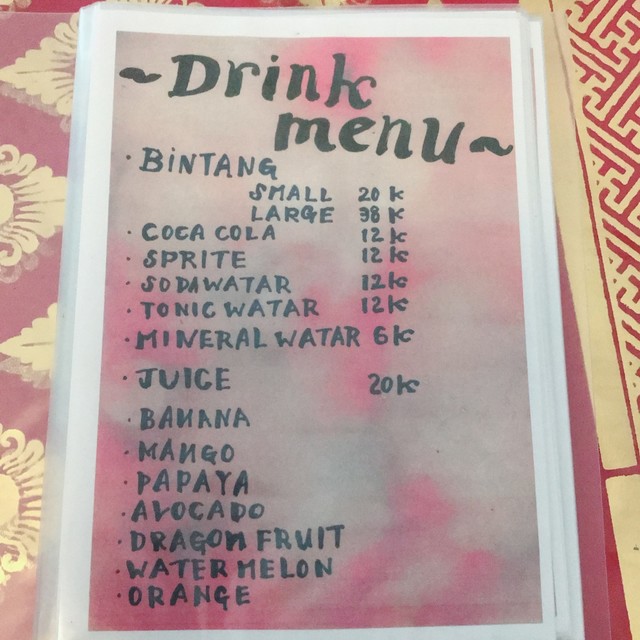 ~Drink
menu~
· BiNTANG
SMALL 20 K
LARGE 38 K
· COCA COLA 12 K
· SPRITE 12 K
· SODAWATAR 12 K
· TONIC WATAR 12 K
· MINERAL WATAR 6 K
· JUICE 20 K
· BANANA
· MANGO
· PAPAYA
· AVOCADO
· DRAGON FRUIT
· WATER MELON
· ORANGE